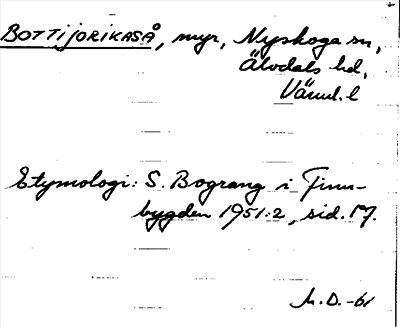 BOTTIJORIKASÅ, myr, Nyskoga sn,
Älvdals hd,
Värml. l
Etymologi: S. Bograng i Finn-
bygden 1951:2, sid. 17.
M.D.-61